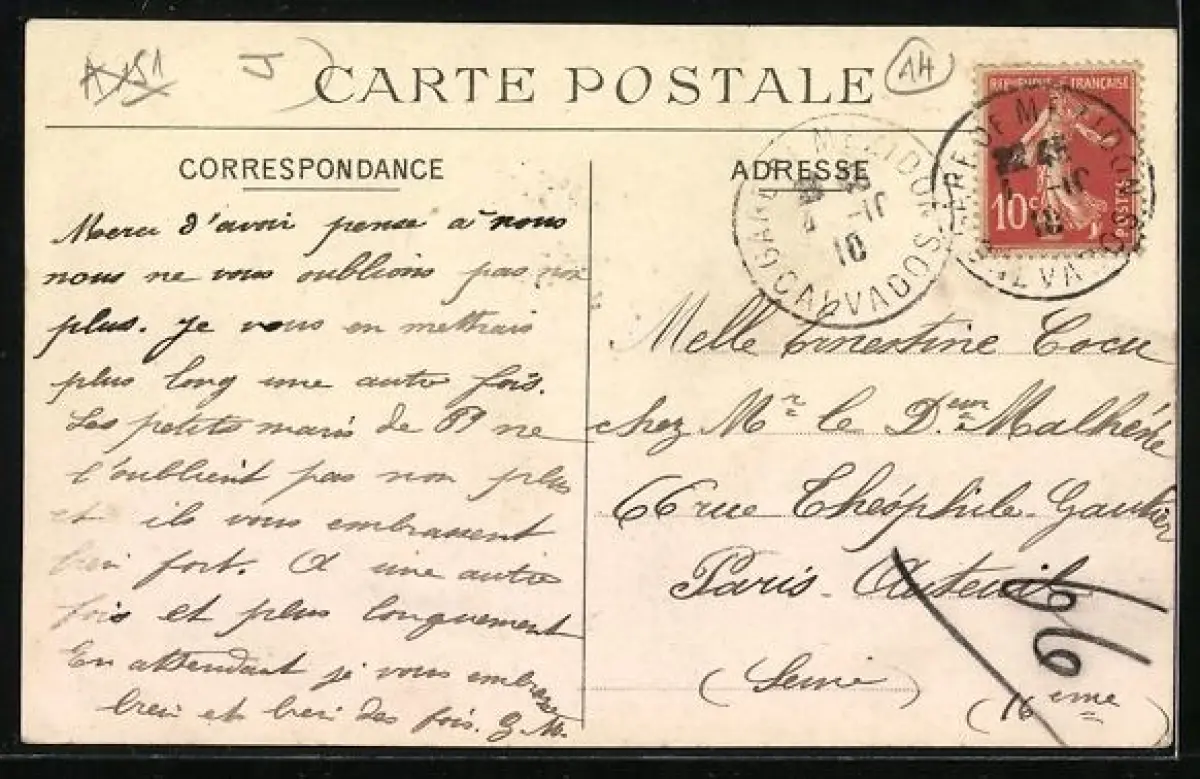 CARTE POSTALE
14
RÉPUBLIQUE FRANÇAISE
10c
POSTES
GARE DE MEZIDON
CALVADOS
10
GARE DE MEZIDON
CALVADOS
10
CORRESPONDANCE
Merci d'avoir pensé à nous
nous ne vous oublions pas non
plus. Je vous en mettrais
plus long une autre fois.
Les petits maris de P ne
l'oublient pas non plus
et ils vous embrassent
bien fort. A une autre
fois et plus longuement
En attendant je vous embrasse
bien et bien des fois. G. M.
ADRESSE
Melle Ernestine Cocu
chez Mr le Dr Malherbe
66 rue Théophile-Gautier
Paris-Auteuil
(Seine)
(16eme)
66